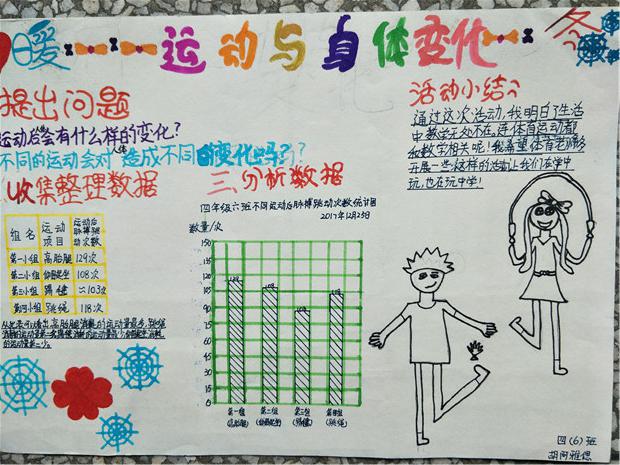 暖
运动与身体变化
冬
提出问题
运动后会有什么样的变化?
不同的运动会对人体造成不同的变化吗?
收集整理数据
组名 运动项目 运动后脉搏跳动次数
第一小组 高抬腿 129次
第二小组 仰卧起坐 108次
第三小组 踢毽 ≈103次
第四小组 跳绳 118次
三、分析数据
四年级六班不同运动后脉搏跳动次数统计图
2017年12月25日
数量/次
150
135
120
105
90
75
60
45
30
15
0
第一组 第二组 第三组 第四组
(高抬腿) (仰卧起坐) (踢毽) (跳绳)
活动小结
通过这次活动,我明白了生活
中数学无处不在,连体育运动都
和数学相关呢!我希望体育老师多
开展一些这样的活动让我们在学中
玩,也在玩中学!
四(6)班